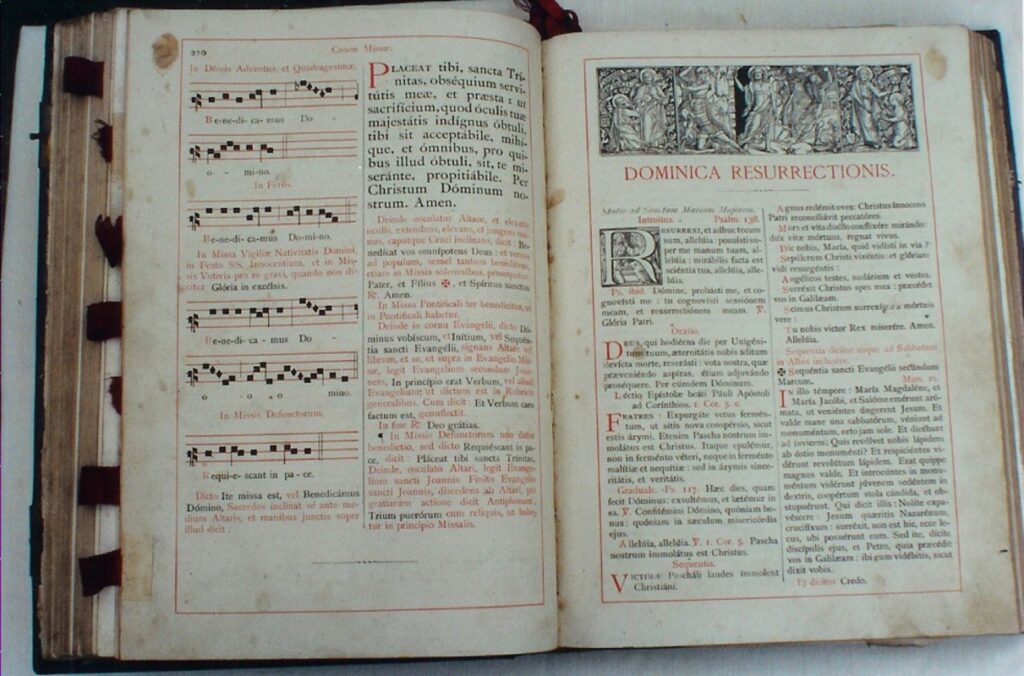 210
Canon Missæ
In Dñicis Adventus, et Quadragesimæ.
Be-ne-di-ca-mus Do-
o-mi-no.
In Feriis.
Be-ne-di-ca-mus Do-mi-no.
In Missa Vigiliæ Nativitatis Domini,
in Festo SS. Innocentium, et in Mis-
sis Votivis pro re gravi, quando non di-
citur Glória in excélsis.
Be-ne-di-ca-mus Do-
o-o-o mino.
In Missis Defunctorum.
Requi-e-scant in pa-ce.
Dicto Ite missa est, vel Benedicámus
Dómino, Sacerdos inclinat se ante me-
dium Altaris, et manibus junctis super
illud dicit:
PLACEAT tibi, sancta Tri-
nitas, obséquium servi-
tútis meæ, et præsta: ut
sacrifícium, quod óculis tuæ
majestátis indígnus óbtuli,
tibi sit acceptábile, mihi-
que, et ómnibus, pro qui-
bus illud óbtuli, sit, te mi-
seránte, propitiábile. Per
Christum Dóminum no-
strum. Amen.
Deinde osculatur Altare, et elevatis
oculis, extendens, elevans, et jungens ma-
nus, caputque Cruci inclinans, dicit: Be-
nedícat vos omnípotens Deus: et versus
ad populum, semel tantum benedicens,
etiam in Missis solemnibus, prosequitur:
Pater, et Fílius ✠, et Spíritus sanctus.
℟. Amen.
In Missa Pontificali ter benedicitur, ut
in Pontificali habetur.
Deinde in cornu Evangelii, dicto Dó-
minus vobíscum, et Inítium, vel Sequén-
tia sancti Evangélii, signans Altare vel
librum, et se, ut supra in Evangelio Mis-
sæ, legit Evangelium secundum Joan-
nem, In princípio erat Verbum, vel aliud
Evangelium, ut dictum est in Rubricis
generalibus. Cum dicit: Et Verbum caro
factum est, genuflectit.
In fine ℟. Deo grátias.
¶ In Missis Defunctorum non datur
benedictio, sed dicto Requiéscant in pa-
ce, dicit: Pláceat tibi sancta Trínitas,
Deinde, osculato Altari, legit Evange-
lium sancti Joannis Finito Evangelio
sancti Joannis, discedens ab Altari, pro
gratiarum actione dicit Antiphonam,
Trium puerórum cum reliquis, ut habe-
tur in principio Missalis.
DOMINICA RESURRECTIONIS.
Statio ad Sanctam Mariam Majorem.
Introitus. Psalm. 138.
RESURREXI, et adhuc tecum
sum, allelúia: posuísti su-
per me manum tuam, al-
lelúia: mirábilis facta est
sciéntia tua, allelúia, alle-
lúia.
Ps. ibid. Dómine, probásti me, et co-
gnovísti me: tu cognovísti sessiónem
meam, et resurrectiónem meam. ℣.
Glória Patri.
Oratio.
DEUS, qui hodiérna die per Unigéni-
tum tuum, æternitátis nobis áditum
devícta morte, reserásti: vota nostra, quæ
præveniéndo aspíras, étiam adjuvándo
proséquere. Per eúmdem Dóminum.
Léctio Epístolæ beáti Páuli Apóstoli
ad Corínthios. 1. Cor. 5. c.
FRATRES: Expurgáte vetus fermén-
tum, ut sitis nova conspérsio, sicut
estis ázymi. Etenim Pascha nostrum im-
molátus est Christus. Itaque epulémur,
non in ferménto véteri, neque in ferménto
malítiæ et nequítiæ: sed in ázymis since-
ritátis, et veritátis.
Graduale. Ps. 117. Hæc dies, quam
fecit Dóminus: exsultémus, et lætémur in
ea. ℣. Confitémini Dómino, quóniam bo-
nus: quóniam in sǽculum misericórdia
ejus.
Allelúia, allelúia. ℣. 1. Cor. 5. Pascha
nostrum immolátus est Christus.
Sequentia.
VICTIMÆ Pascháli laudes ímmolent
Christiáni.
Agnus redémit oves: Christus ínnocens
Patri reconciliávit peccatóres.
Mors et vita duéllo conflixére mirándo:
dux vitæ mórtuus, regnat vivus.
Dic nobis, María, quid vidísti in via?
Sepúlcrum Christi vivéntis: et glóriam
vidi resurgéntis:
Angélicos testes, sudárium et vestes.
Surréxit Christus spes mea: præcédet
vos in Galilǽam.
Scimus Christum surrexísse a mórtuis
vere:
Tu nobis victor Rex miserére. Amen.
Allelúia.
Sequentia dicitur usque ad Sabbatum
in Albis inclusive.
✠ Sequéntia sancti Evangélii secúndum
Marcum. Marc. 16.
IN illo témpore: María Magdaléne, et
María Jacóbi, et Salóme emérunt aró-
mata, ut veniéntes úngerent Jesum. Et
valde mane una sabbatórum, véniunt ad
monuméntum, orto jam sole. Et dicébant
ad ínvicem: Quis revólvet nobis lápidem
ab óstio monuménti? Et respiciéntes vi-
dérunt revolútum lápidem. Erat quippe
magnus valde. Et introeúntes in monu-
méntum vidérunt júvenem sedéntem in
dextris, coopértum stola cándida, et ob-
stupuérunt. Qui dicit illis: Nolíte expa-
véscere: Jesum quǽritis Nazarénum,
crucifíxum: surréxit, non est hic, ecce lo-
cus, ubi posuérunt eum. Sed ite, dícite
discípulis ejus, et Petro, quia præcédit
vos in Galilǽam: ibi eum vidébitis, sicut
dixit vobis.
Et dicitur Credo.